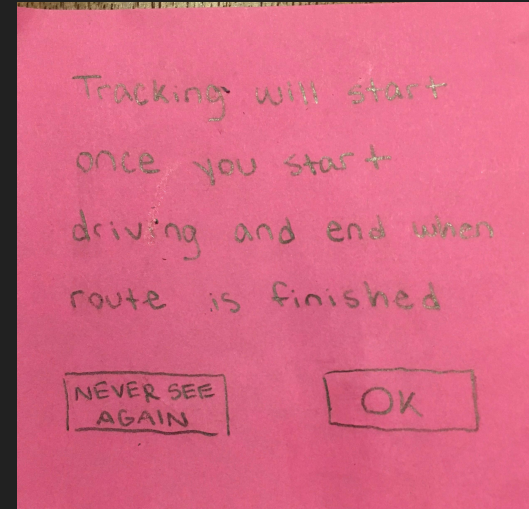 Tracking will start
once you start
driving and end when
route is finished
NEVER SEE
AGAIN
OK